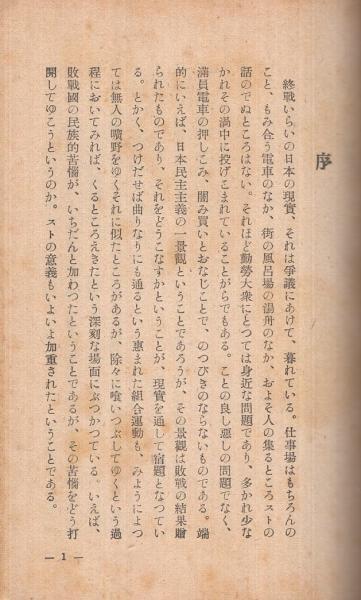 序
終戰いらいの日本の現實、それは爭議にあけて、暮れている。仕事場はもちろんの
こと、もみ合う電車のなか、街の風呂場の湯舟のなか、およそ人の集るところストの
話のでぬところはない。それほど勤勞大衆にとつては身近な問題であり、多かれ少な
かれその渦中に投げこまれていることがらでもある。ことの良し悪しの問題でなく、
満員電車の押しこみ、闇み買いとおなじことで、のつぴきのならないものである。端
的にいえば、日本民主主義の一景觀ということであろうが、その景觀は敗戰の結果贈
られたものであり、それをどうこなすかということが、現實を通して宿題となつてい
る。とかく、つけだせば曲りなりにも通るという惠まれた組合運動も、みようによつ
ては無人の曠野をゆくそれに似たところがあるが、除々に喰いつぶしてゆくという過
程においてみれば、くるところえきたという深刻な場面にぶつかつている。いえば、
敗戰國の民族的苦惱が、いちだんと加わつたということであるが、その苦惱をどう打
開してゆこうというのか。ストの意義もいよいよ加重されたということである。
— 1 —